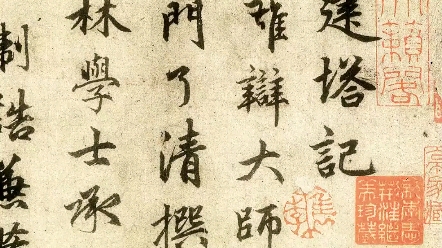 建塔記
雄辯大師
門了清撰
林學士承
制誥兼
籟閣